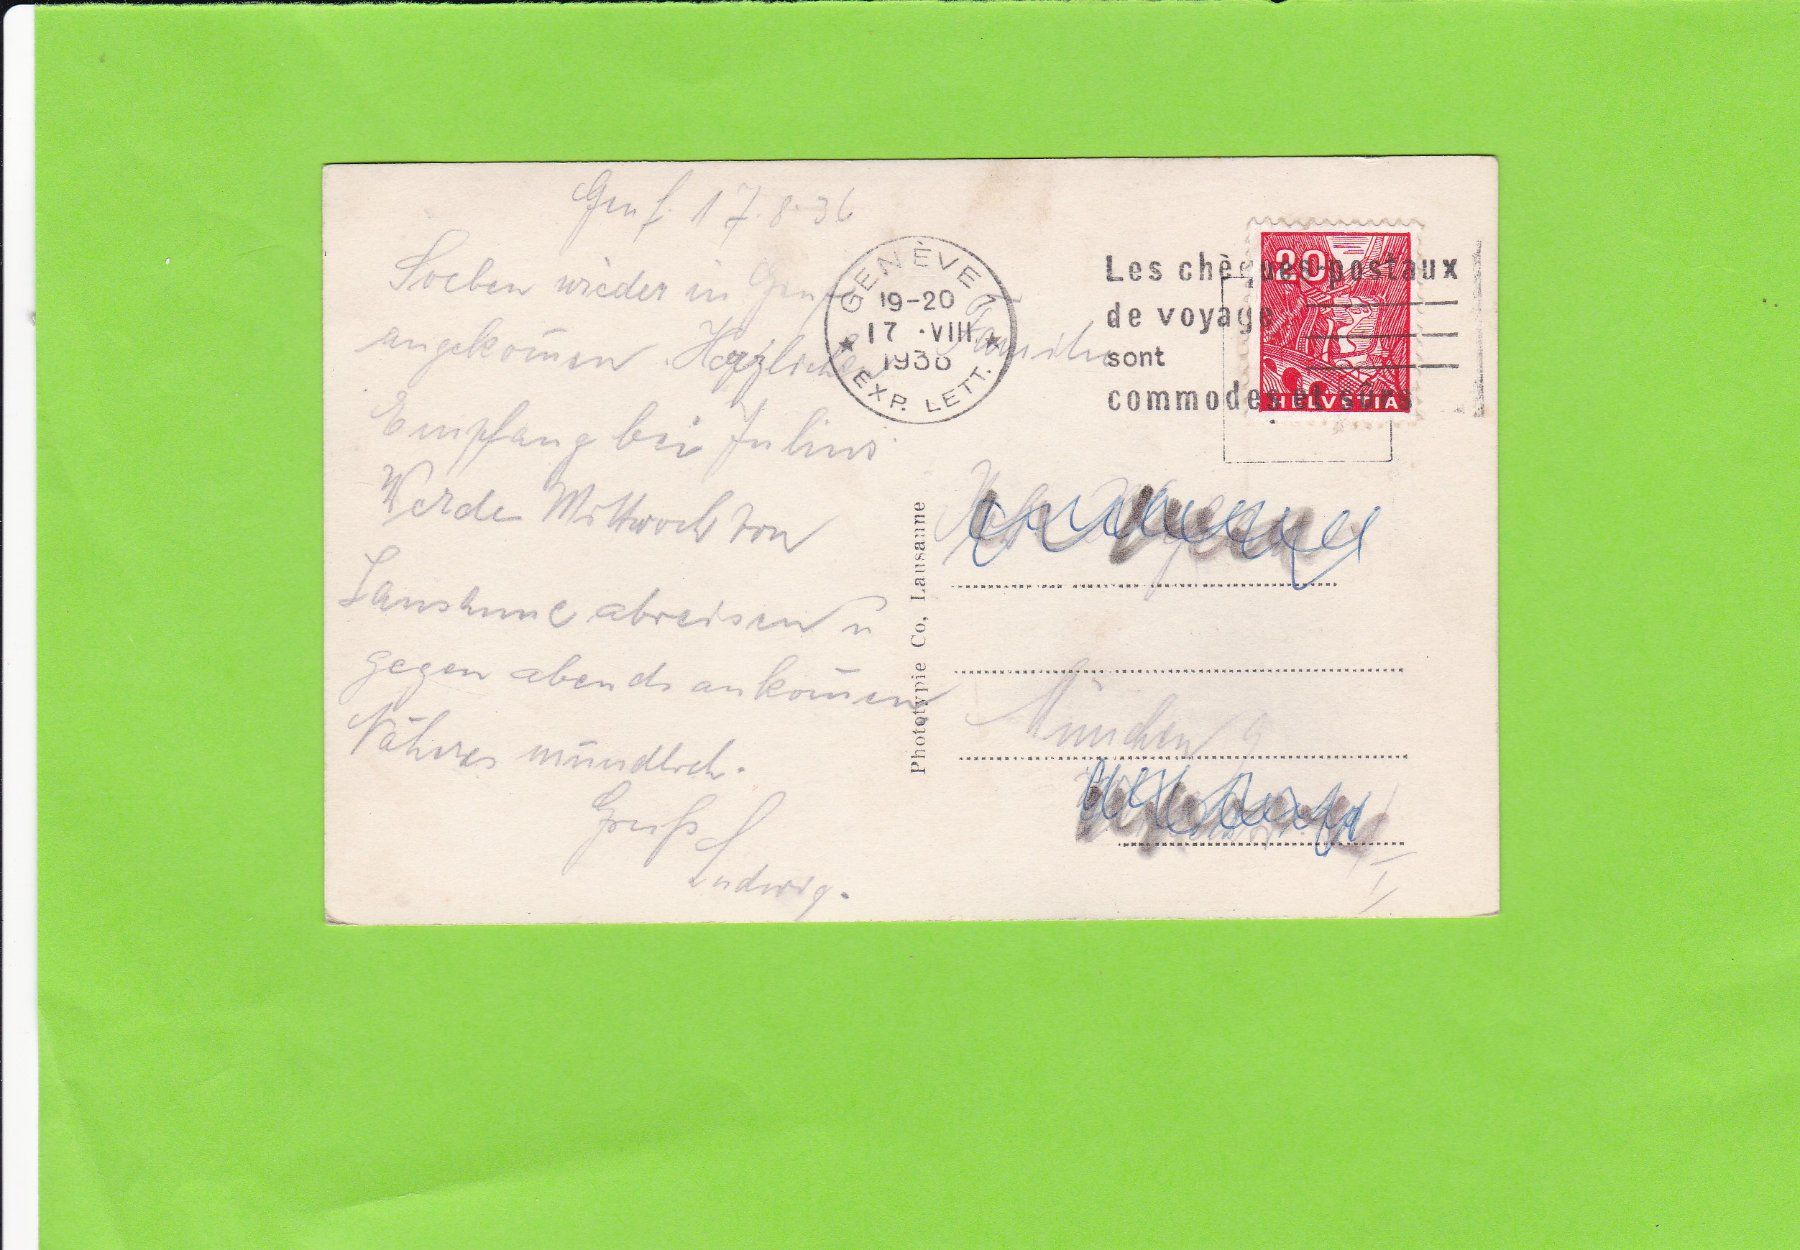 Genf. 17.8.36
Soeben wieder in Genf
angekom̄en. Herzlicher
Empfang bei Julius
Werde Mittwoch von
Lausanne abreisen u
gegen abends ankom̄en
Nähres mündlich.
Gruß
Ludwig.
GENÈVE 1
19-20
17 .VIII
1936
EXP. LETT.
Les chèques-postaux
de voyage
sont
commodes et sûrs
20
HELVETIA
Photypie Co, Lausanne
Familie
München 9